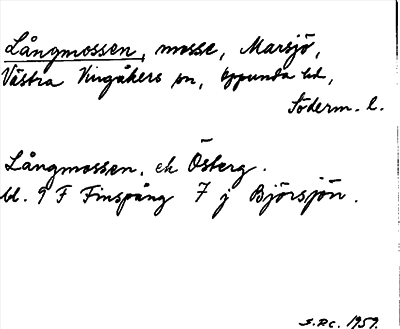 Långmossen, mosse, Marsjö,
Västra Vingåkers sn, Oppunda hd,
Söderm. l.
Långmossen, ek Österg.
bl. 9 F Finspång 7 j Björsjön.
S.RC. 1959.